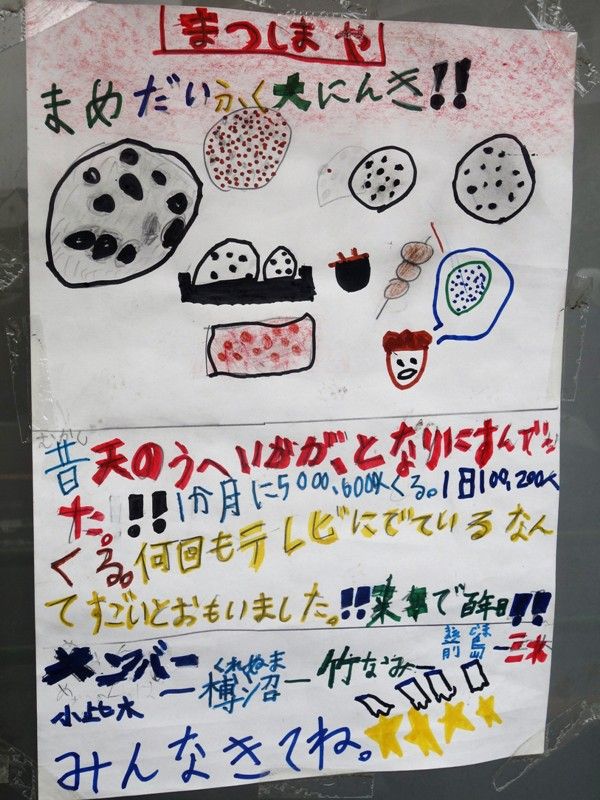 まつしまや
まめだいふく大にんき!!
むかし
昔天のうへいかが、となりにすんでい
た。!!1か月に5000,6000人くる。1日100,200人
くる。何回もテレビにでているなん
てすごいとおもいました。!!業事で百年目!!
メンバー
くれぬま
沼
竹
みんなきてね。